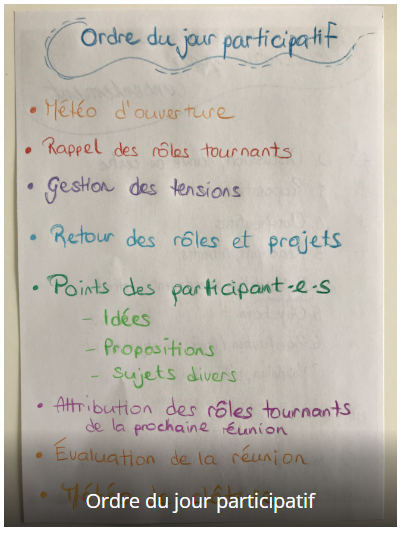 Ordre du jour participatif
• Météo d'ouverture
• Rappel des rôles tournants
• Gestion des tensions
• Retour des rôles et projets
• Points des participant-e-s
- Idées
- Propositions
- Sujets divers
• Attribution des rôles tournants
de la prochaine réunion
• Évaluation de la réunion
• Météo
Ordre du jour participatif